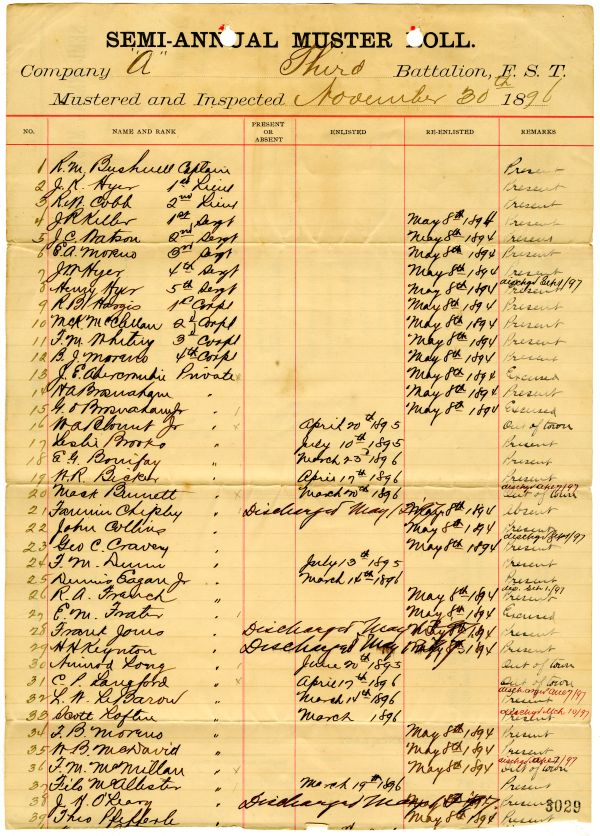 SEMI-ANNUAL MUSTER ROLL.
Company "A" Third Battalion, F. S. T.
Mustered and Inspected November 30th 1896
NO. NAME AND RANK PRESENT OR ABSENT ENLISTED RE-ENLISTED REMARKS
1 R. M. Bushnell Captain Present
2 J. K. Hyer 1st Lieut Present
3 R. M. Cobb 2nd Lieut Present
4 J. R. Keller 1st Sergt May 8th 1894 Present
5 J. C. Watson 2nd Sergt May 8th 1894 Present
6 E. A. Moreno 3rd Sergt May 8th 1894 Present
7 J. W. Hyer 4th Sergt May 8th 1894 Present
8 Henry Hyer 5th Sergt May 8th 1894 Present dischgd Sept 1/97
9 R. B. Hargis 1st Corpl May 8th 1894 Present
10 McK McCallan 2d Corpl May 8th 1894 Present
11 F. M. Whiting 3rd Corpl May 8th 1894 Present
12 B. J. Moreno 4th Corpl May 8th 1894 Present
13 J. E. Abercrombie Private May 8th 1894 Excused
14 H A Brosnaham " May 8th 1894 Present
15 G. O Brosnaham Jr " 1 May 8th 1894 Excused
16 W A Blount Jr " x April 20th 1895 Out of town
17 Leslie Brooks " July 10th 1895 Present
18 E. G. Bonifay " March 23d 1896 Present
19 W. R. Becker " April 17th 1896 Present
20 Mask Burnett " x March 20th 1896 Out of town
21 Fannin Chipley " Discharged May May 8th 1894 absent
22 John Collins " May 8th 1894 Present
23 Geo C. Cravey " May 8th 1894 Present
24 F. M. Dunn " July 13th 1895 Present
25 Dennis Eagan Jr " March 14th 1896 Present
26 R. A. French " May 8th 1894 Present
27 E. M. Frater " 1 May 8th 1894 Excused
28 Frank Jones " Discharged May May 8th 1894 Present
29 H H Keynton " Discharged May May 8th 1894 Present
30 Nimrod Long " 1 June 20th 1895 Out of town
31 C. P. Langford " x April 17th 1896 Out of town
32 L. W. LeBaron " March 14th 1896 Present
33 Scott Loftin " March 1896 Present dischgd Mch 10/97
34 F. B. Moreno " May 8th 1894 Present
35 W. B. McDavid " May 8th 1894 Present
36 F. M. McMillan " x May 8th 1894 Out of town
37 Filo McAllister " March 19th 1896 Present
38 J. H. O'Leary " Discharged May Present
39 Theo Pfefferle " May 8th 1894 Present
3029